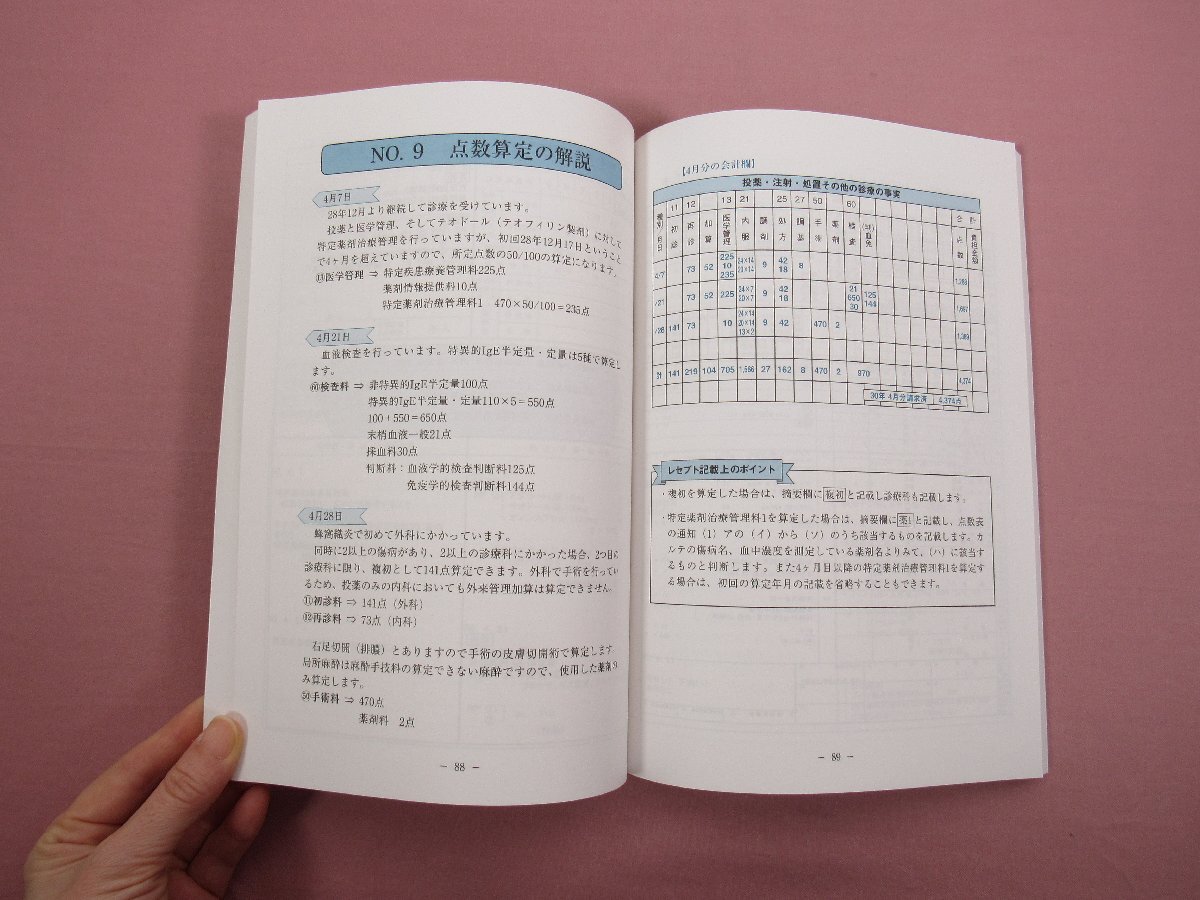 NO. 9 点数算定の解説
4月7日
28年12月より継続して診療を受けています。
投薬と医学管理、そしてテオドール（テオフィリン製剤）に対して
特定薬剤治療管理を行っていますが、初回28年12月17日ということ
で4ヶ月を超えていますので、所定点数の50/100の算定になります。
⑬医学管理 ⇒ 特定疾患療養管理料225点
薬剤情報提供料10点
特定薬剤治療管理料1 470×50/100＝235点
4月21日
血液検査を行っています。特異的IgE半定量・定量は5種で算定し
ます。
⑥⓪検査料 ⇒ 非特異的IgE半定量100点
特異的IgE半定量・定量110×5＝550点
100＋550＝650点
末梢血液一般21点
採血料30点
判断料：血液学的検査判断料125点
免疫学的検査判断料144点
4月28日
蜂窩織炎で初めて外科にかかっています。
同時に2以上の傷病があり、2以上の診療科にかかった場合、2つ目の
診療科に限り、複初として141点算定できます。外科で手術を行ってい
るため、投薬のみの内科においても外来管理加算は算定できません。
⑪初診料 ⇒ 141点（外科）
⑫再診料 ⇒ 73点（内科）
右足切開（排膿）とありますので手術の皮膚切開術で算定します。
局所麻酔は麻酔手技料の算定できない麻酔ですので、使用した薬剤の
み算定します。
㊿手術料 ⇒ 470点
薬剤料 2点
－ 88 －
【4月分の会計欄】
投薬・注射・処置その他の診療の事実
11 12 13 21 25 27 50 60 合計
種別 月日 初診 再診 加算 医学管理 内服 調剤 処方 調基 手術 薬剤 検査 (判)血免 点数 負担金額
4/7 73 52 225 10 235 24×14 20×14 9 42 18 8 1,288
/21 73 52 225 24×7 20×7 9 42 18 21 650 30 125 144 1,697
/28 141 73 10 24×14 20×14 13×2 9 42 470 2 1,389
計 141 219 104 705 1,566 27 162 8 470 2 970 4,374
30年 4月分請求済 4,374点
レセプト記載上のポイント
・複初を算定した場合は、摘要欄に複初と記載し診療科も記載します。
・特定薬剤治療管理料1を算定した場合は、摘要欄に薬1と記載し、点数表
の通知（1）アの（イ）から（ソ）のうち該当するものを記載します。カ
ルテの傷病名、血中濃度を測定している薬剤名よりみて、（ハ）に該当す
るものと判断します。また4ヶ月目以降の特定薬剤治療管理料1を算定す
る場合は、初回の算定年月の記載を省略することもできます。
－ 89 －